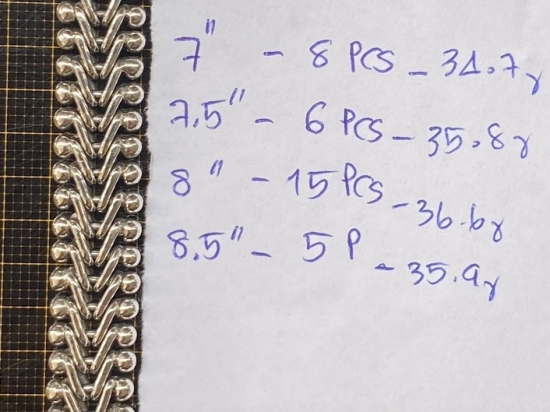 7" - 8 PCS - 31.7g
7.5" - 6 PCS - 35.8g
8" - 15 PCS - 36.6g
8.5" - 5 P - 35.9g